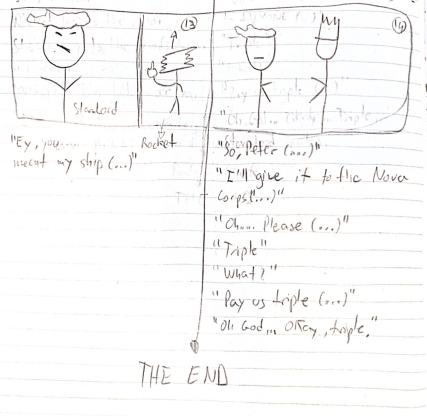 13
14
Standard
Rocket
"Ey, you
meant my ship (...)"
"So, Peter (...)"
"I'll give it to the Nova
Corps (...)"
"Oh... Please (...)"
"Triple"
"What?"
"Pay us triple (...)"
"Oh God... Okay, triple."
THE END